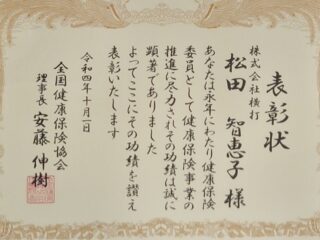 表彰状
株式会社横打
松田 智恵子 様
あなたは永年にわたり健康保険
委員として健康保険事業の
推進に尽力されその功績は誠に
顕著でありました
よってここにその功績を讃え
表彰いたします
令和四年十月一日
全国健康保険協会
理事長 安藤 伸樹